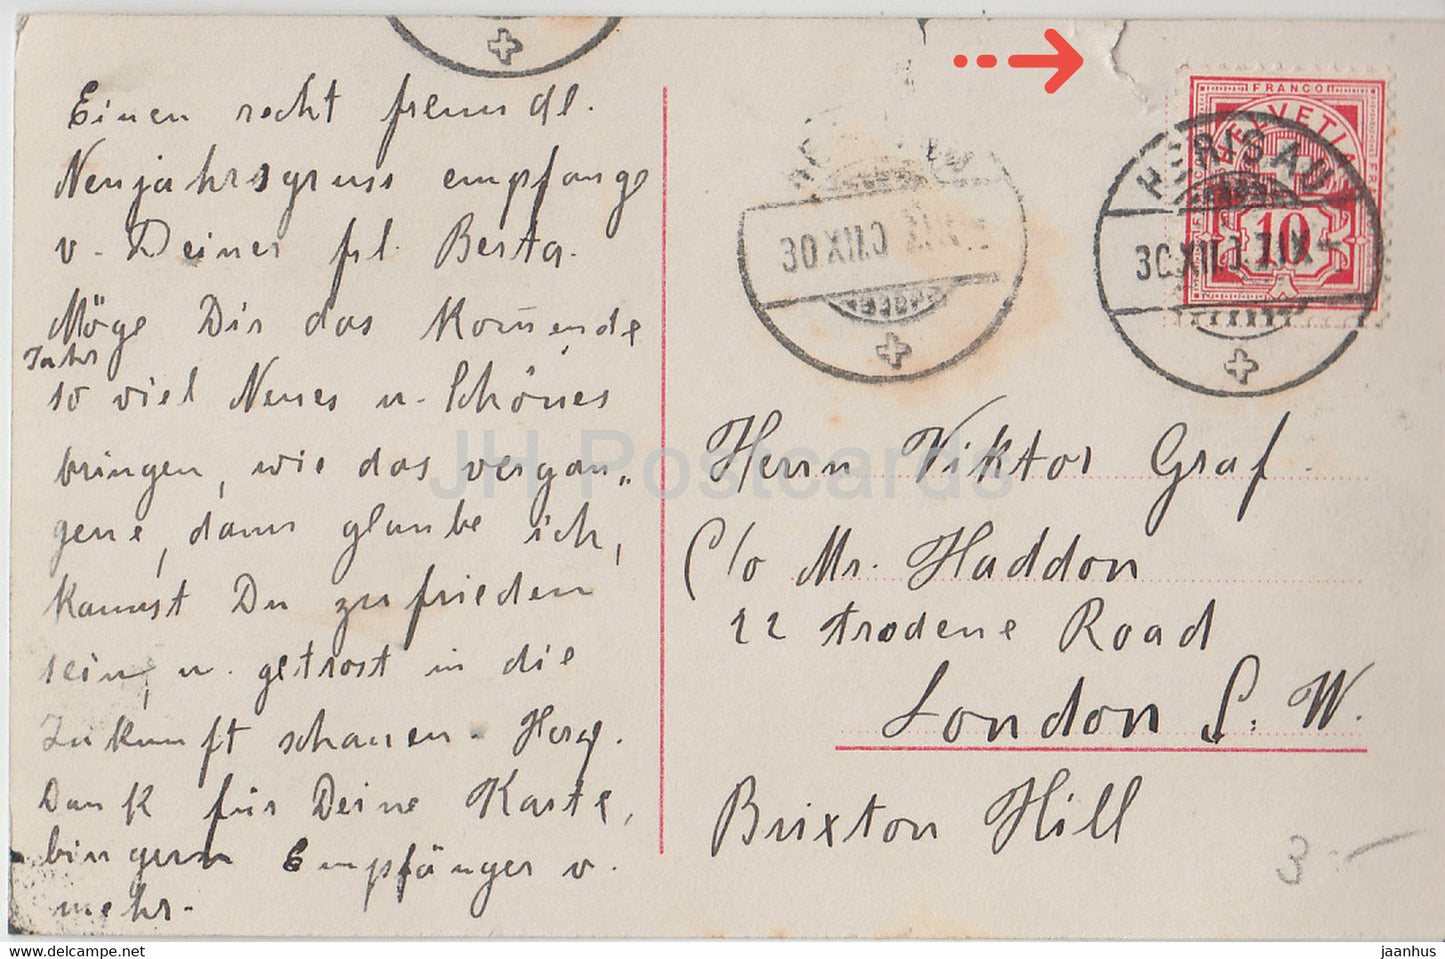 Einen recht freundl.
Neujahrsgruss empfange
v. Deiner frl. Berta.
Möge Dir das Kom̅ende
Jahr
so viel Neues u. Schönes
bringen, wie das vergan„
gene, dann glaube ich,
kannst Du zufrieden
sein, u. getrost in die
Zukunft schauen. Herzl.
Dank für Deine Karte,
bin gern Empfänger v.
mehr.
FRANCO
HELVETIA
10
HERISAU
30.XII.0
30 XII.0
Herrn Viktor Graf.
C/o Mr. Haddon
22 Arodene Road
London S. W.
Brixton Hill
3.-
JH Postcards
www.delcampe.net
jaanhus